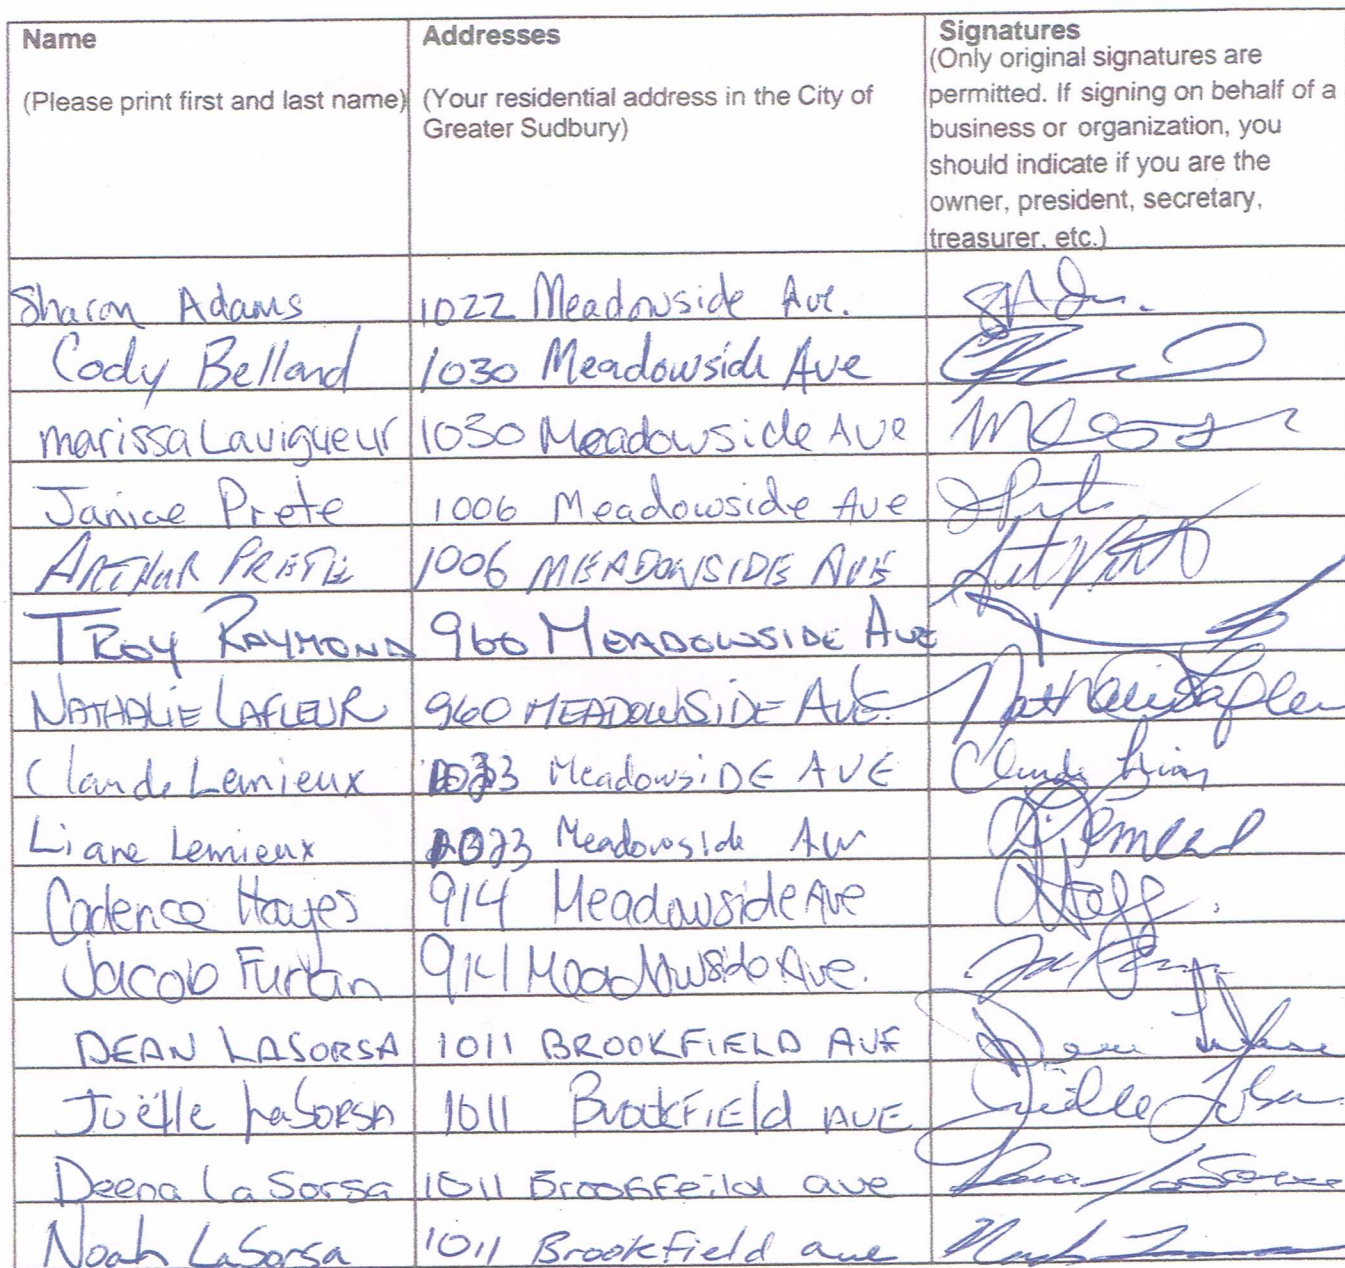 Name
(Please print first and last name)
Addresses
(Your residential address in the City of
Greater Sudbury)
Signatures
(Only original signatures are
permitted. If signing on behalf of a
business or organization, you
should indicate if you are the
owner, president, secretary,
treasurer, etc.)
Sharon Adams 1022 Meadowside Ave.
Cody Belland 1030 Meadowside Ave
marissa Lavigueur 1030 Meadowside Ave
Janice Prete 1006 Meadowside Ave
ARTHUR PRETE 1006 MEADOWSIDE AVE
TROY RAYMOND 960 MEADOWSIDE AVE
NATHALIE LAFLEUR 960 MEADOWSIDE AVE. Nathalie Lafleu
Claude Lemieux MeadowsiDE AVE Claude
Liane Lemieux Meadowside
Cadence Hayes 914 Meadowside Ave
Jacob 914 Meadowside Ave.
DEAN LASORSA 1011 BROOKFIELD AVE
Joëlle LaSORSA 1011 BrookFIEld AVE Joëlle
Deena LaSorsa 1011 Brookfeild ave
Noah LaSorsa 1011 Brookfield ave